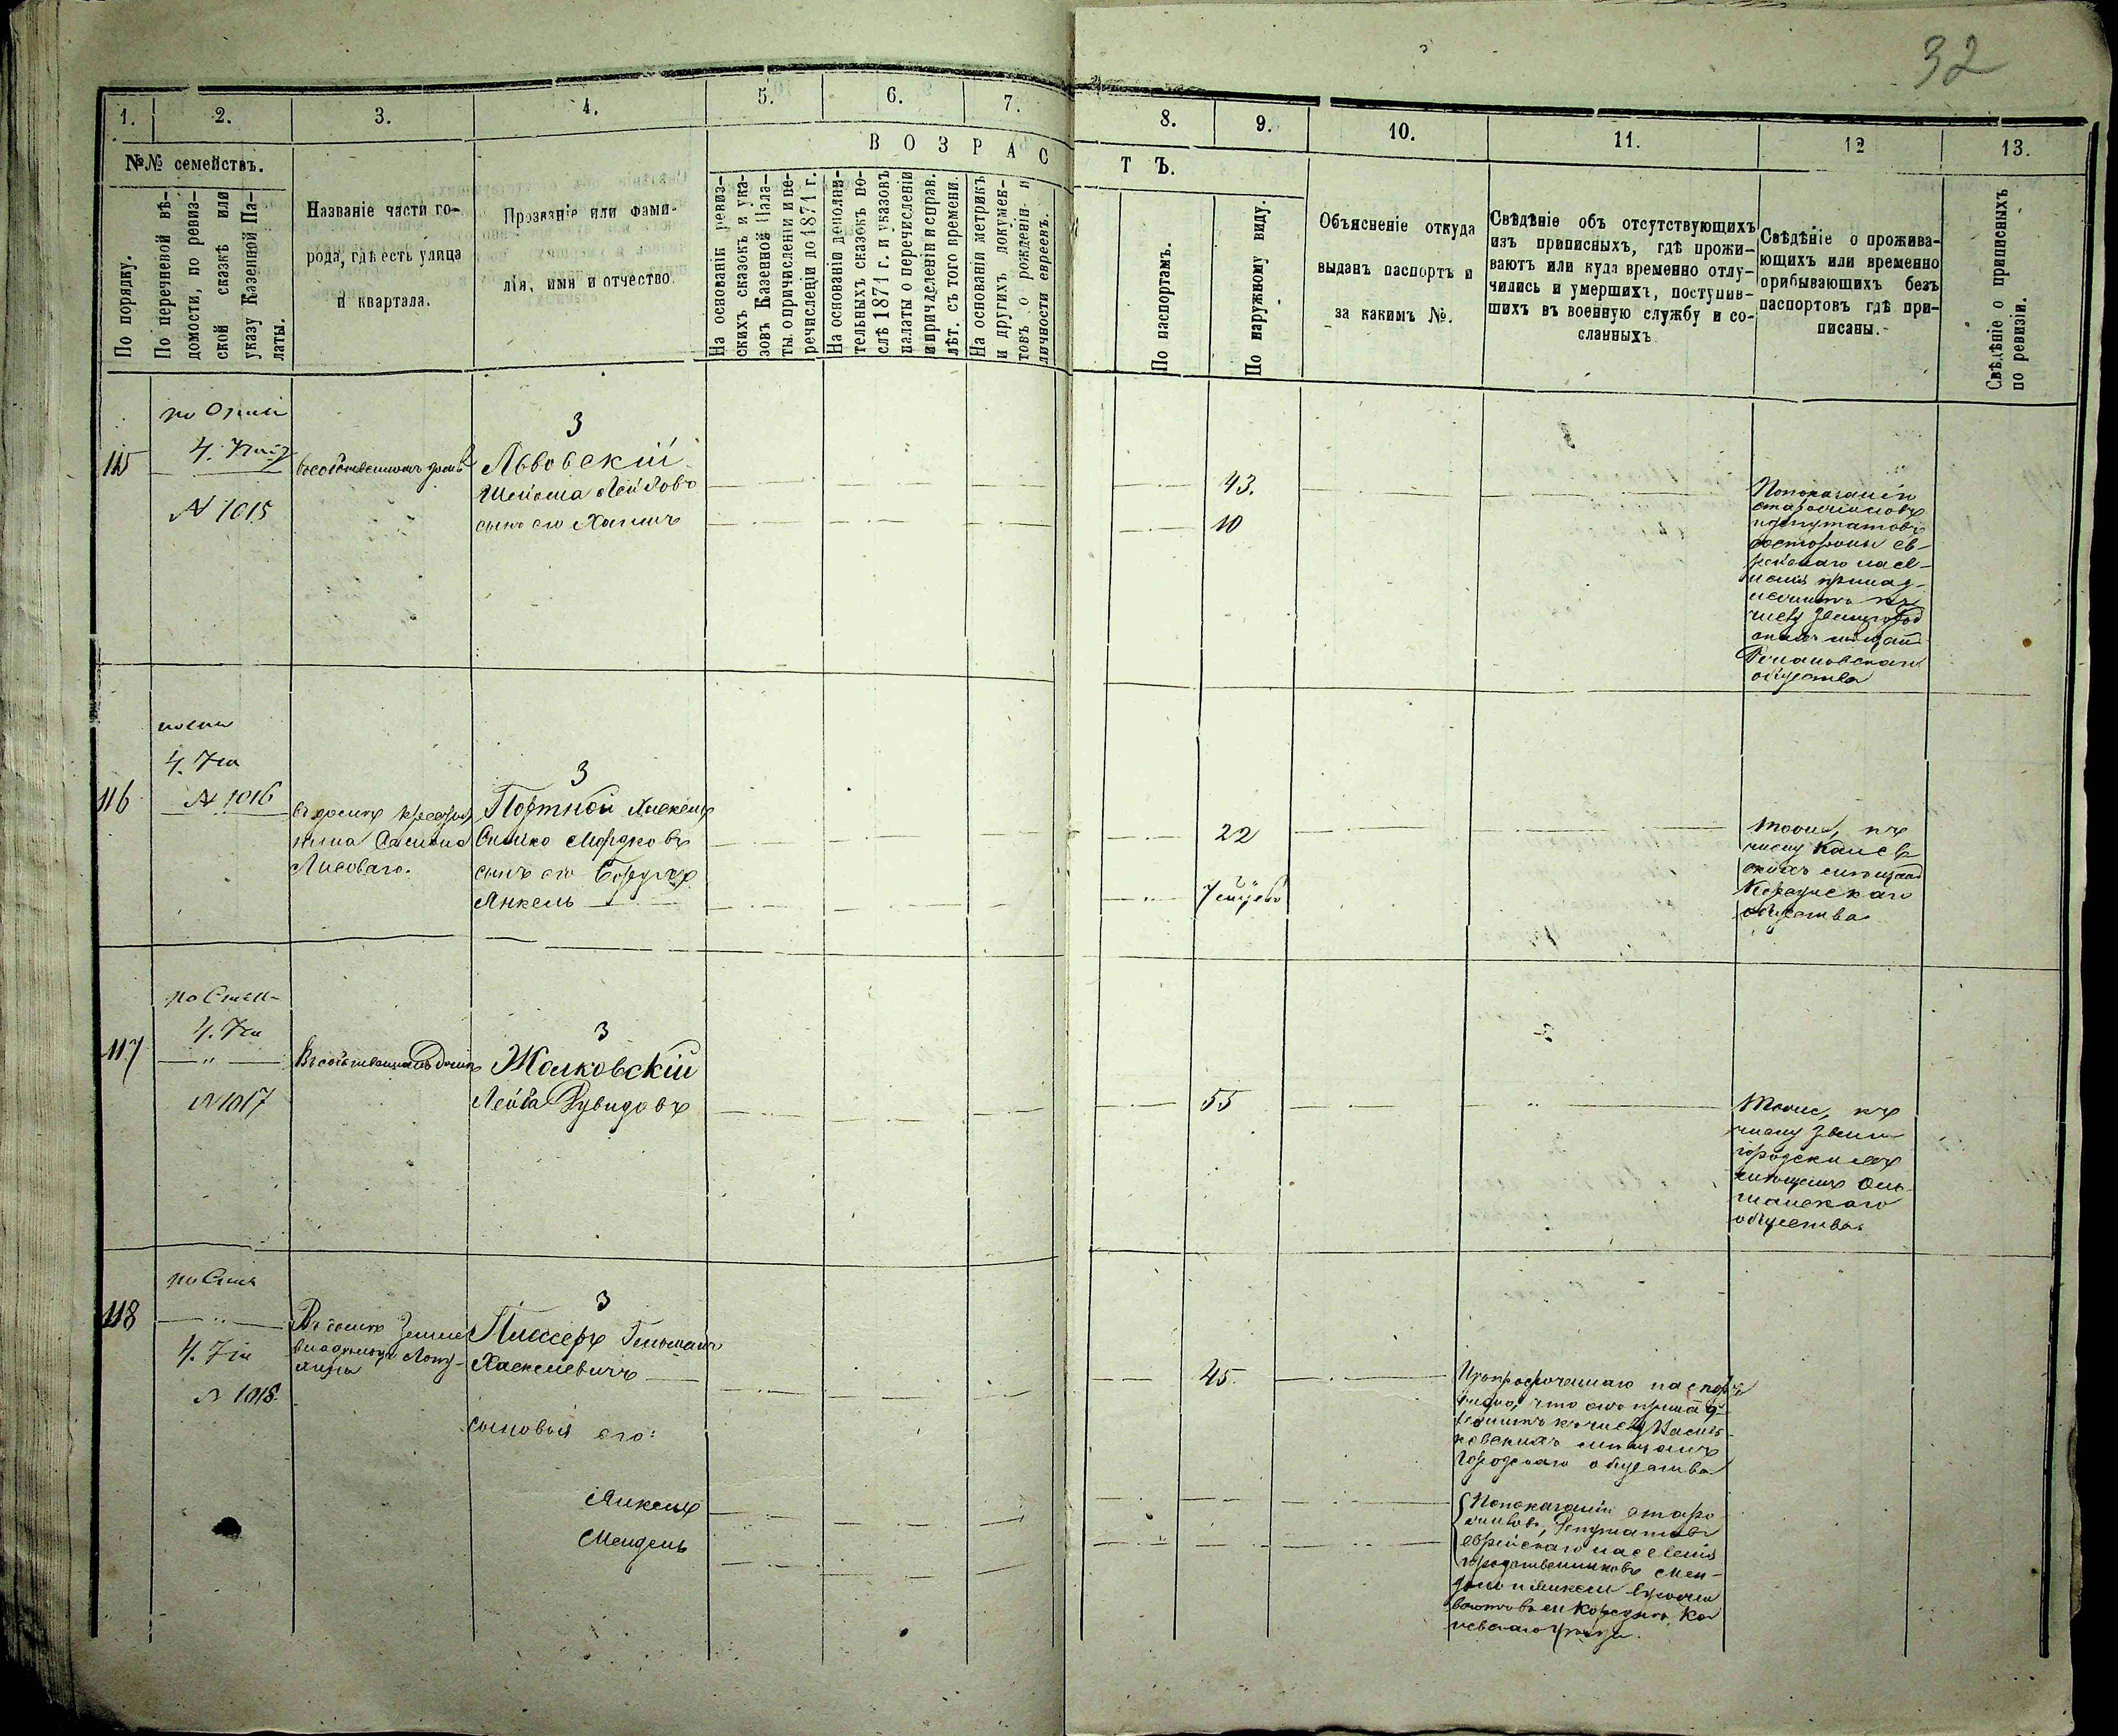 32
1.
2.
3.
4.
5.
6.
7.
8.
9.
10.
11.
12
13.
№№ семействъ.
По порядку.
По перечневой вѣ-
домости, по ревиз-
ской сказкѣ или
указу Казенной Па-
латы.
Названіе части го-
рода, гдѣ есть улица
и квартала.
Прозваніе или фами-
лія, имя и отчество.
ВОЗРАС
ТЪ.
На основаніи ревиз-
скихъ сказокъ и ука-
зовъ Казенной Пала-
ты о причисленіи и пе-
речисленіи до 1871 г.
На основаніи дополни-
тельныхъ сказокъ по-
слѣ 1871 г. и указовъ
палаты о перечисленіи
и причисленіи исправ.
лѣт. съ того времени.
На основаніи метрикъ
и другихъ докумен-
товъ о рожденіи и
личности евреевъ.
По паспортамъ.
По наружному виду.
Объясненіе откуда
выданъ паспортъ и
за какимъ №.
Свѣдѣніе объ отсутствующихъ
изъ приписныхъ, гдѣ прожи-
ваютъ или куда временно отлу-
чились и умершихъ, поступив-
шихъ въ военную службу и со-
сланныхъ
Свѣдѣніе о прожива-
ющихъ или временно
прибывающихъ безъ
паспортовъ гдѣ при-
писаны.
Свѣдѣніе о приписныхъ
по ревизіи.
115
N 1015
Въ собственномъ домѣ
3
Львовскій
Лейбовъ
сынъ его Хаимъ
43.
10
По показанію
старожиловъ
и депутатовъ
со стороны ев-
рейскаго насе-
ленія принад-
лежитъ къ
числу Звенигород
скихъ мѣщанъ
общества
116
N 1016
въ домѣ крестья
нина
Лисоваго.
3
Портной Янкель
Сикко Мордковъ
сынъ его Борухъ
Янкель
22
7 мѣсяц
тоже, къ
числу Канев
скихъ мѣщанъ
Корсунскаго
общества
117
N 1017
Въ собственномъ домѣ
3
Жалковскій
Лейба
55
тоже, къ
числу Звени
городскихъ
мѣщанъ Оль
шанскаго
общества.
118
N 1018.
Въ домѣ Земле
владѣльца Лопу-
хина
3
Хаскелевичъ
сыновья его:
Янкель
Мендель
45.
просроченнаго паспорта
видно, что онъ принад-
лежитъ къ числу Василь-
ковскихъ мѣщанъ
Городскаго общества
По показанію старо
жиловъ, депутатовъ
еврейскаго населенія
и родственниковъ Мен-
дель и Янкель прожи
ваютъ въ м. Корсунь Ка
невскаго уѣзда.